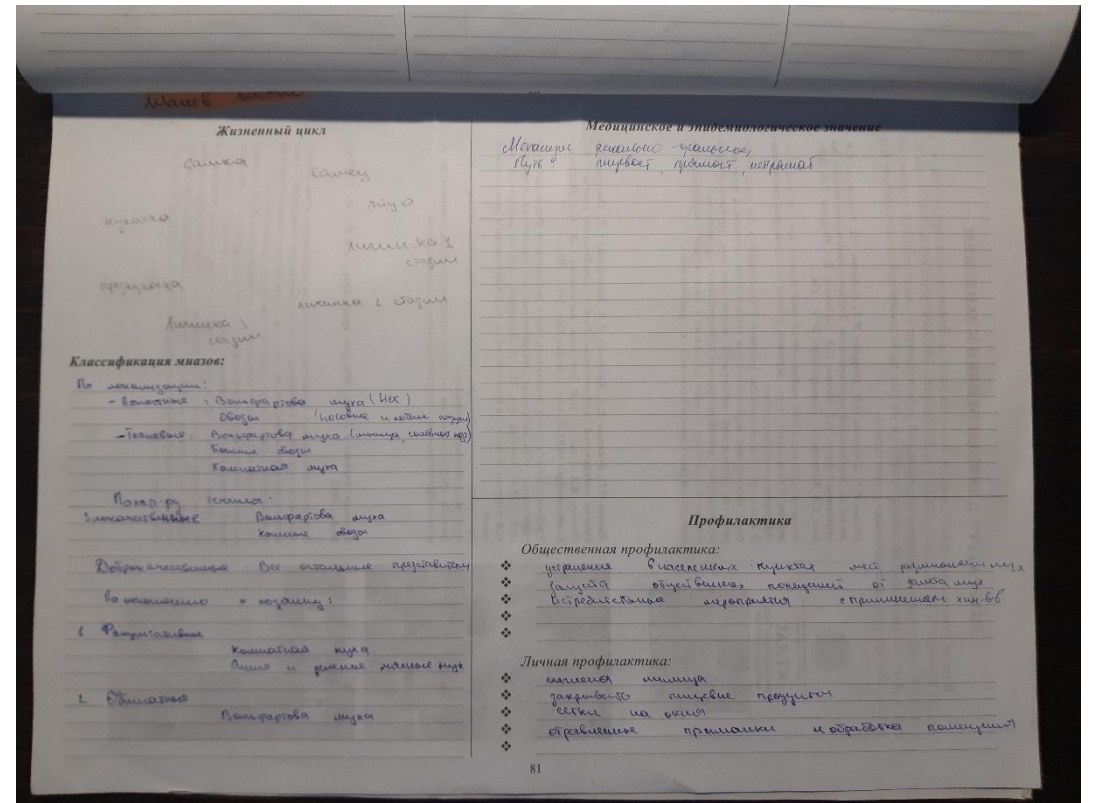 Жизненный цикл
самка
самец
яйцо
куколка
личинка 1
стадии
предкуколка
личинка 2 стадии
личинка 3
стадии
Классификация миазов:
По локализации:
- Полостные : Вольфартова муха (нос)
Овозы (носовые и лобные пазухи)
- Тканевые: Вольфартова муха
Кожные овозы
Комнатная муха
По хар-ру течения:
Злокачественные Вольфартова муха
Кожные овозы
Доброкачественные : Все остальные представители
По отношению к хозяину:
1 Факультативные
Комнатная муха
и мух
2. Облигатные
Вольфартова муха
Медицинское и эпидемиологическое значение
Механизм: фекально-оральный,
Путь:
Профилактика
Общественная профилактика:
❖ устранение в населенных пунктах мест размножения мух
❖ Защита общественных помещений от мух
❖ Истребительные мероприятия с применением хим. в-в
❖
❖
Личная профилактика:
❖ гигиена
❖ закрывать пищевые продукты
❖ сетки на окна
❖ отравленные приманки и обработка помещения
❖
81